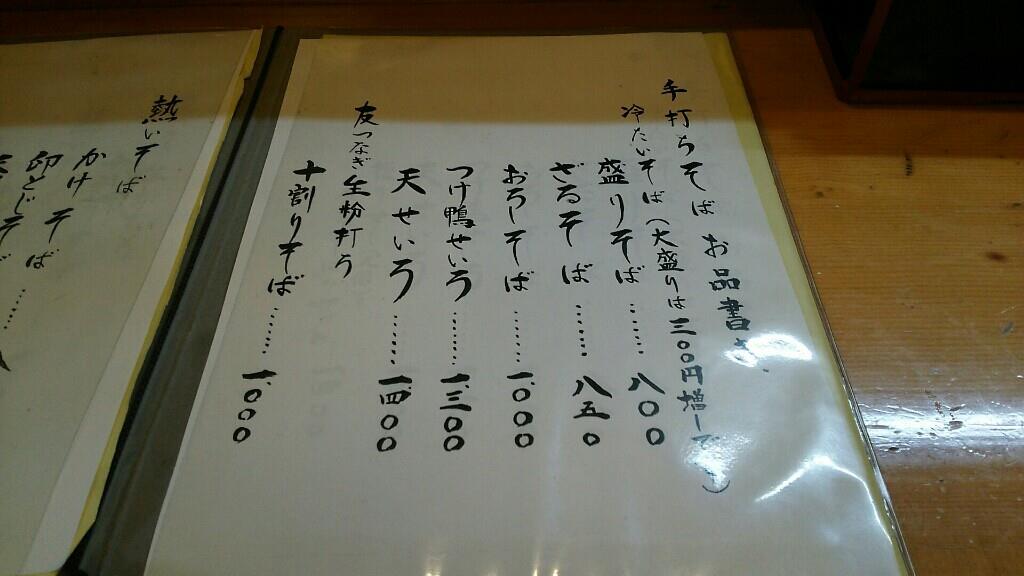 手打ちそば お品書き
冷たいそば（大盛りは三〇〇円増しです）
盛りそば……八〇〇
ざるそば……八五〇
おろしそば……一、〇〇〇
つけ鴨せいろ……一、三〇〇
天せいろ……一、四〇〇
友つなぎ生粉打ち
十割りそば……一、〇〇〇
熱いそば
かけそば
卵とじそば……